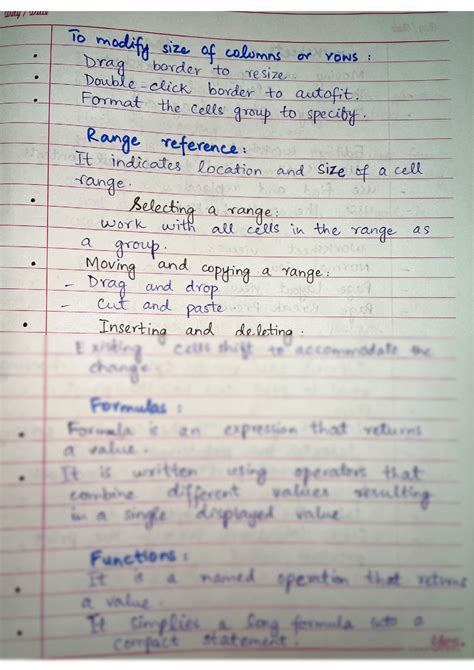 Day / Date
To modify size of columns or rows :
• Drag border to resize
• Double-click border to autofit.
• Format the cells group to specify.
Range reference:
It indicates location and size of a cell
range.
• Selecting a range:
work with all cells in the range as
a group.
• Moving and copying a range:
- Drag and drop
- Cut and paste.
• Inserting and deleting.
Existing cells shift to accommodate the
change.
Formulas :
• Formula is an expression that returns
a value.
• It is written using operators that
combine different values resulting
in a single displayed value
Functions :
• It is a named operation that returns
a value.
• It simplies a long formula into a
compact statement.
Yes